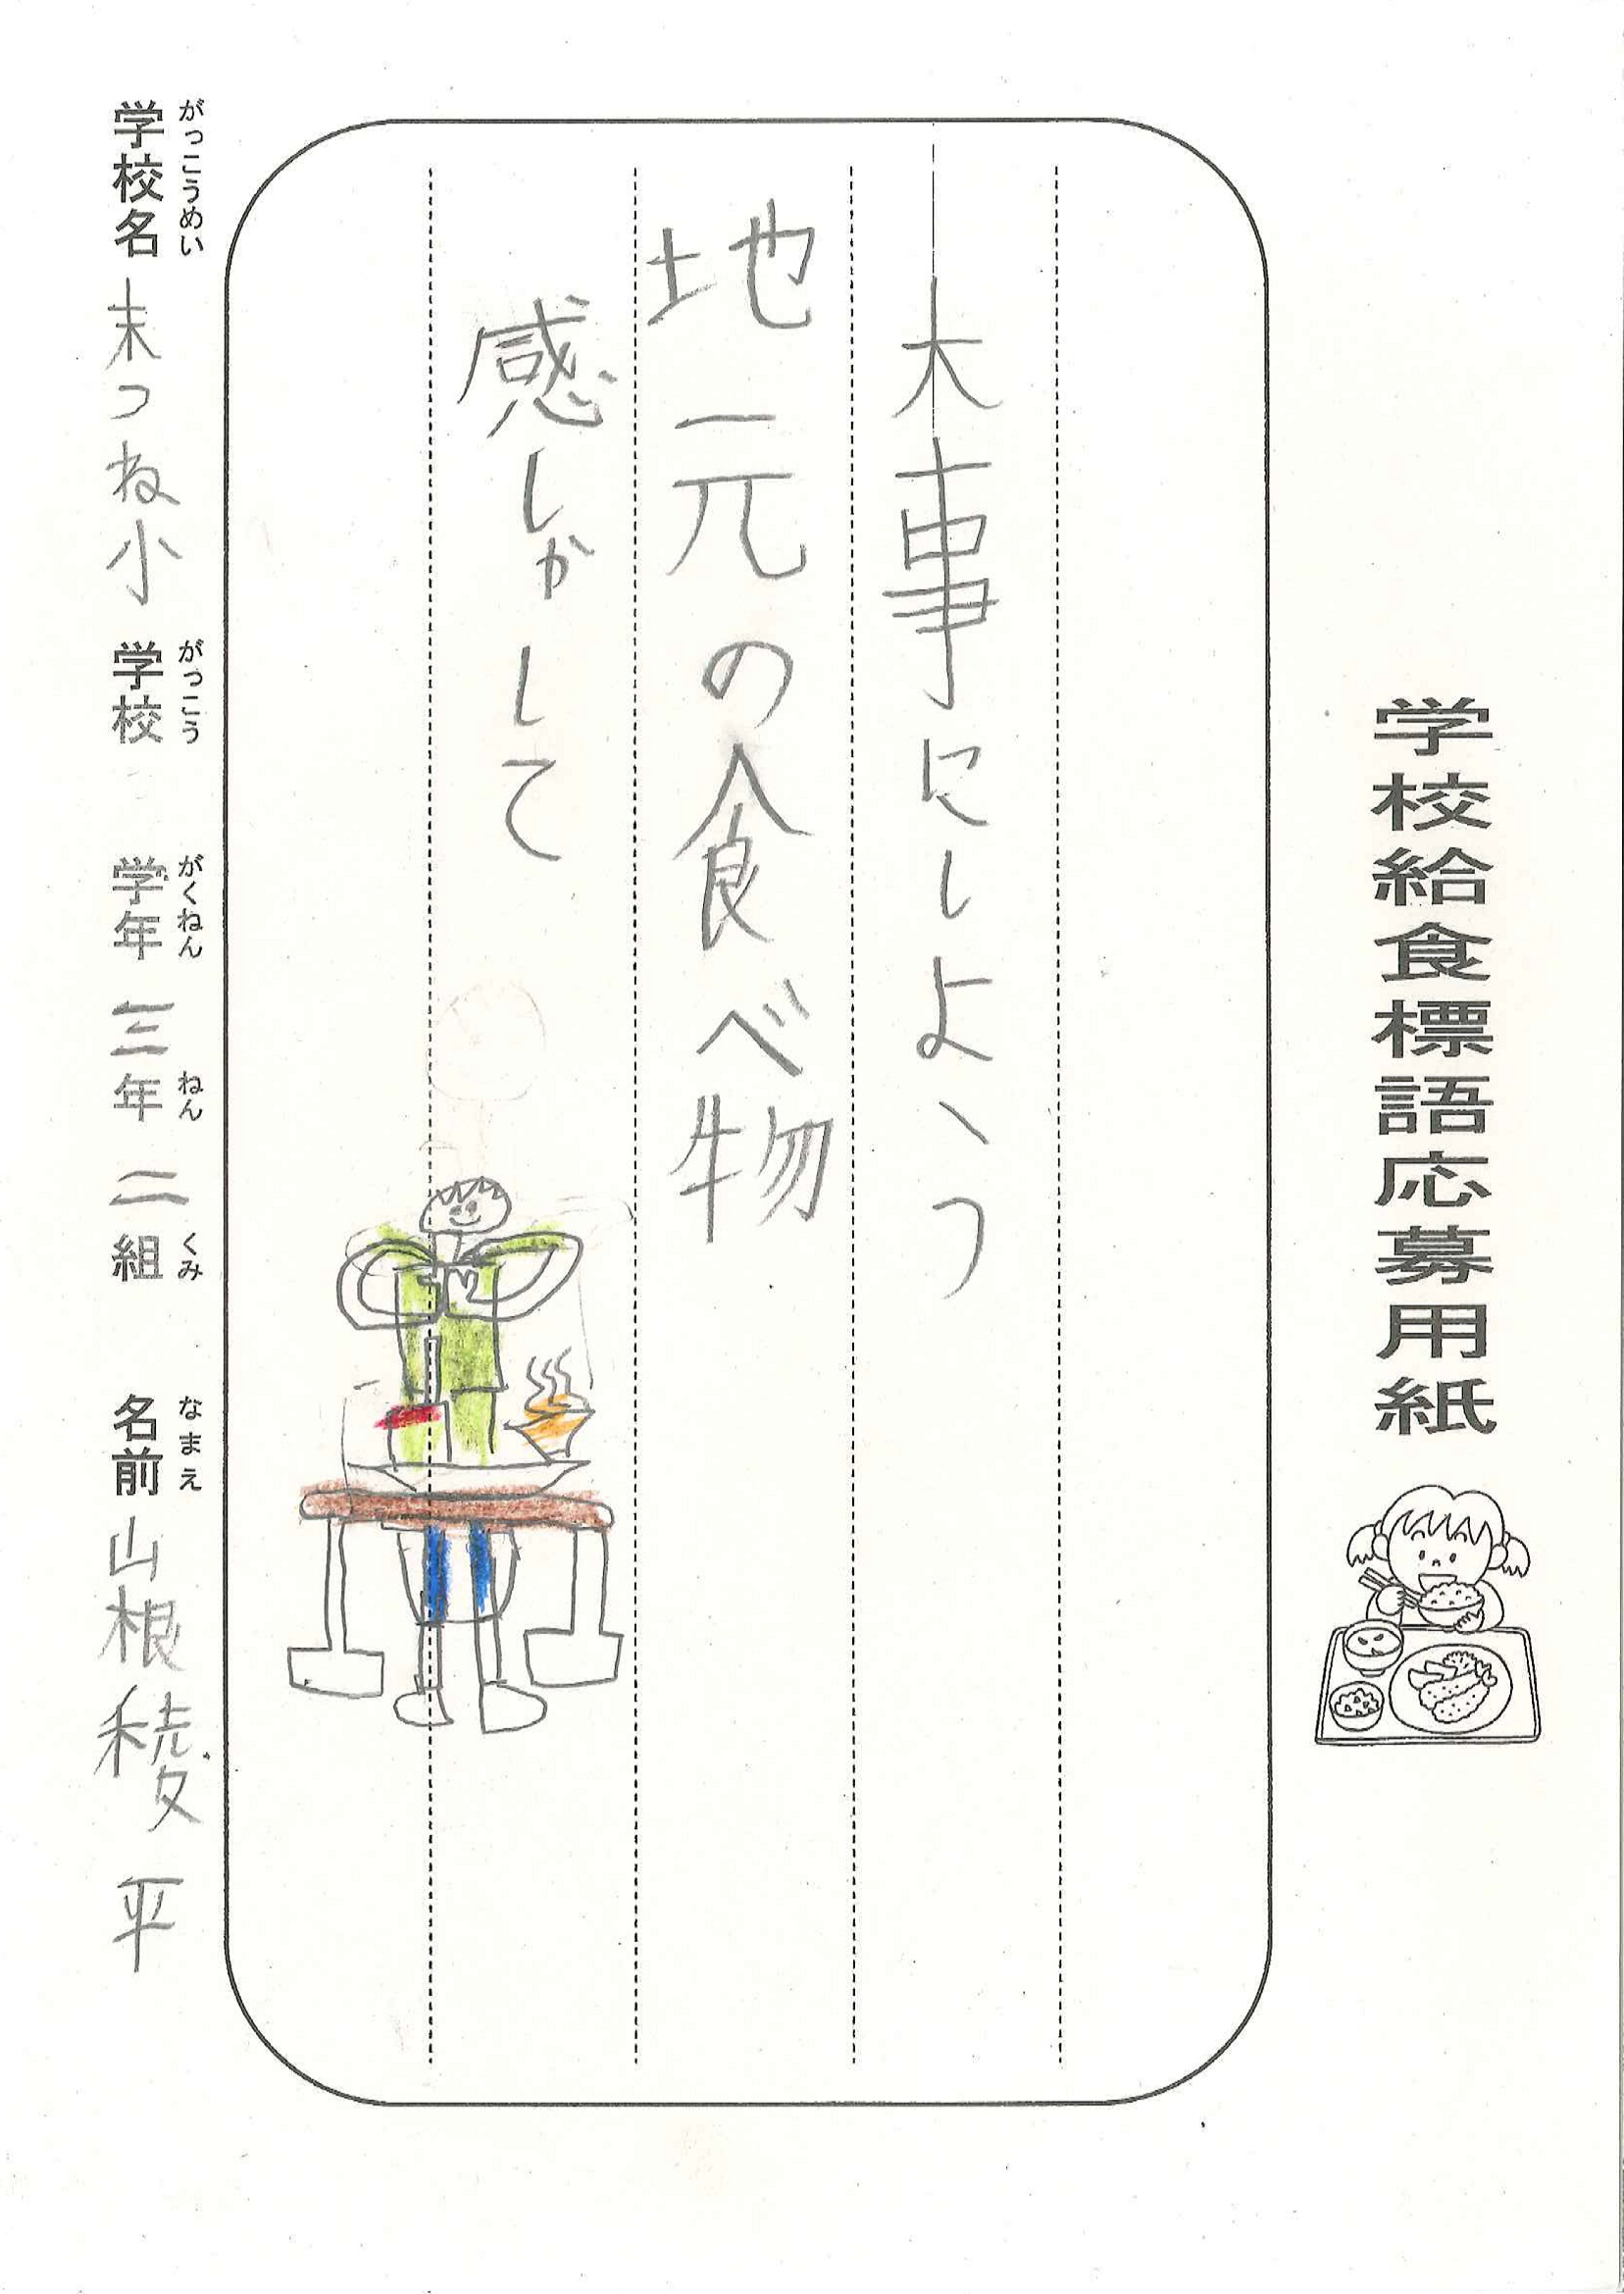 学校給食標語応募用紙
大事にしよう
地元の食べ物
感しゃして
学校名 末つね小 学校 学年 三年 二組 名前 山根 稜平
がっこうめい がっこう がくねん ねん くみ なまえ